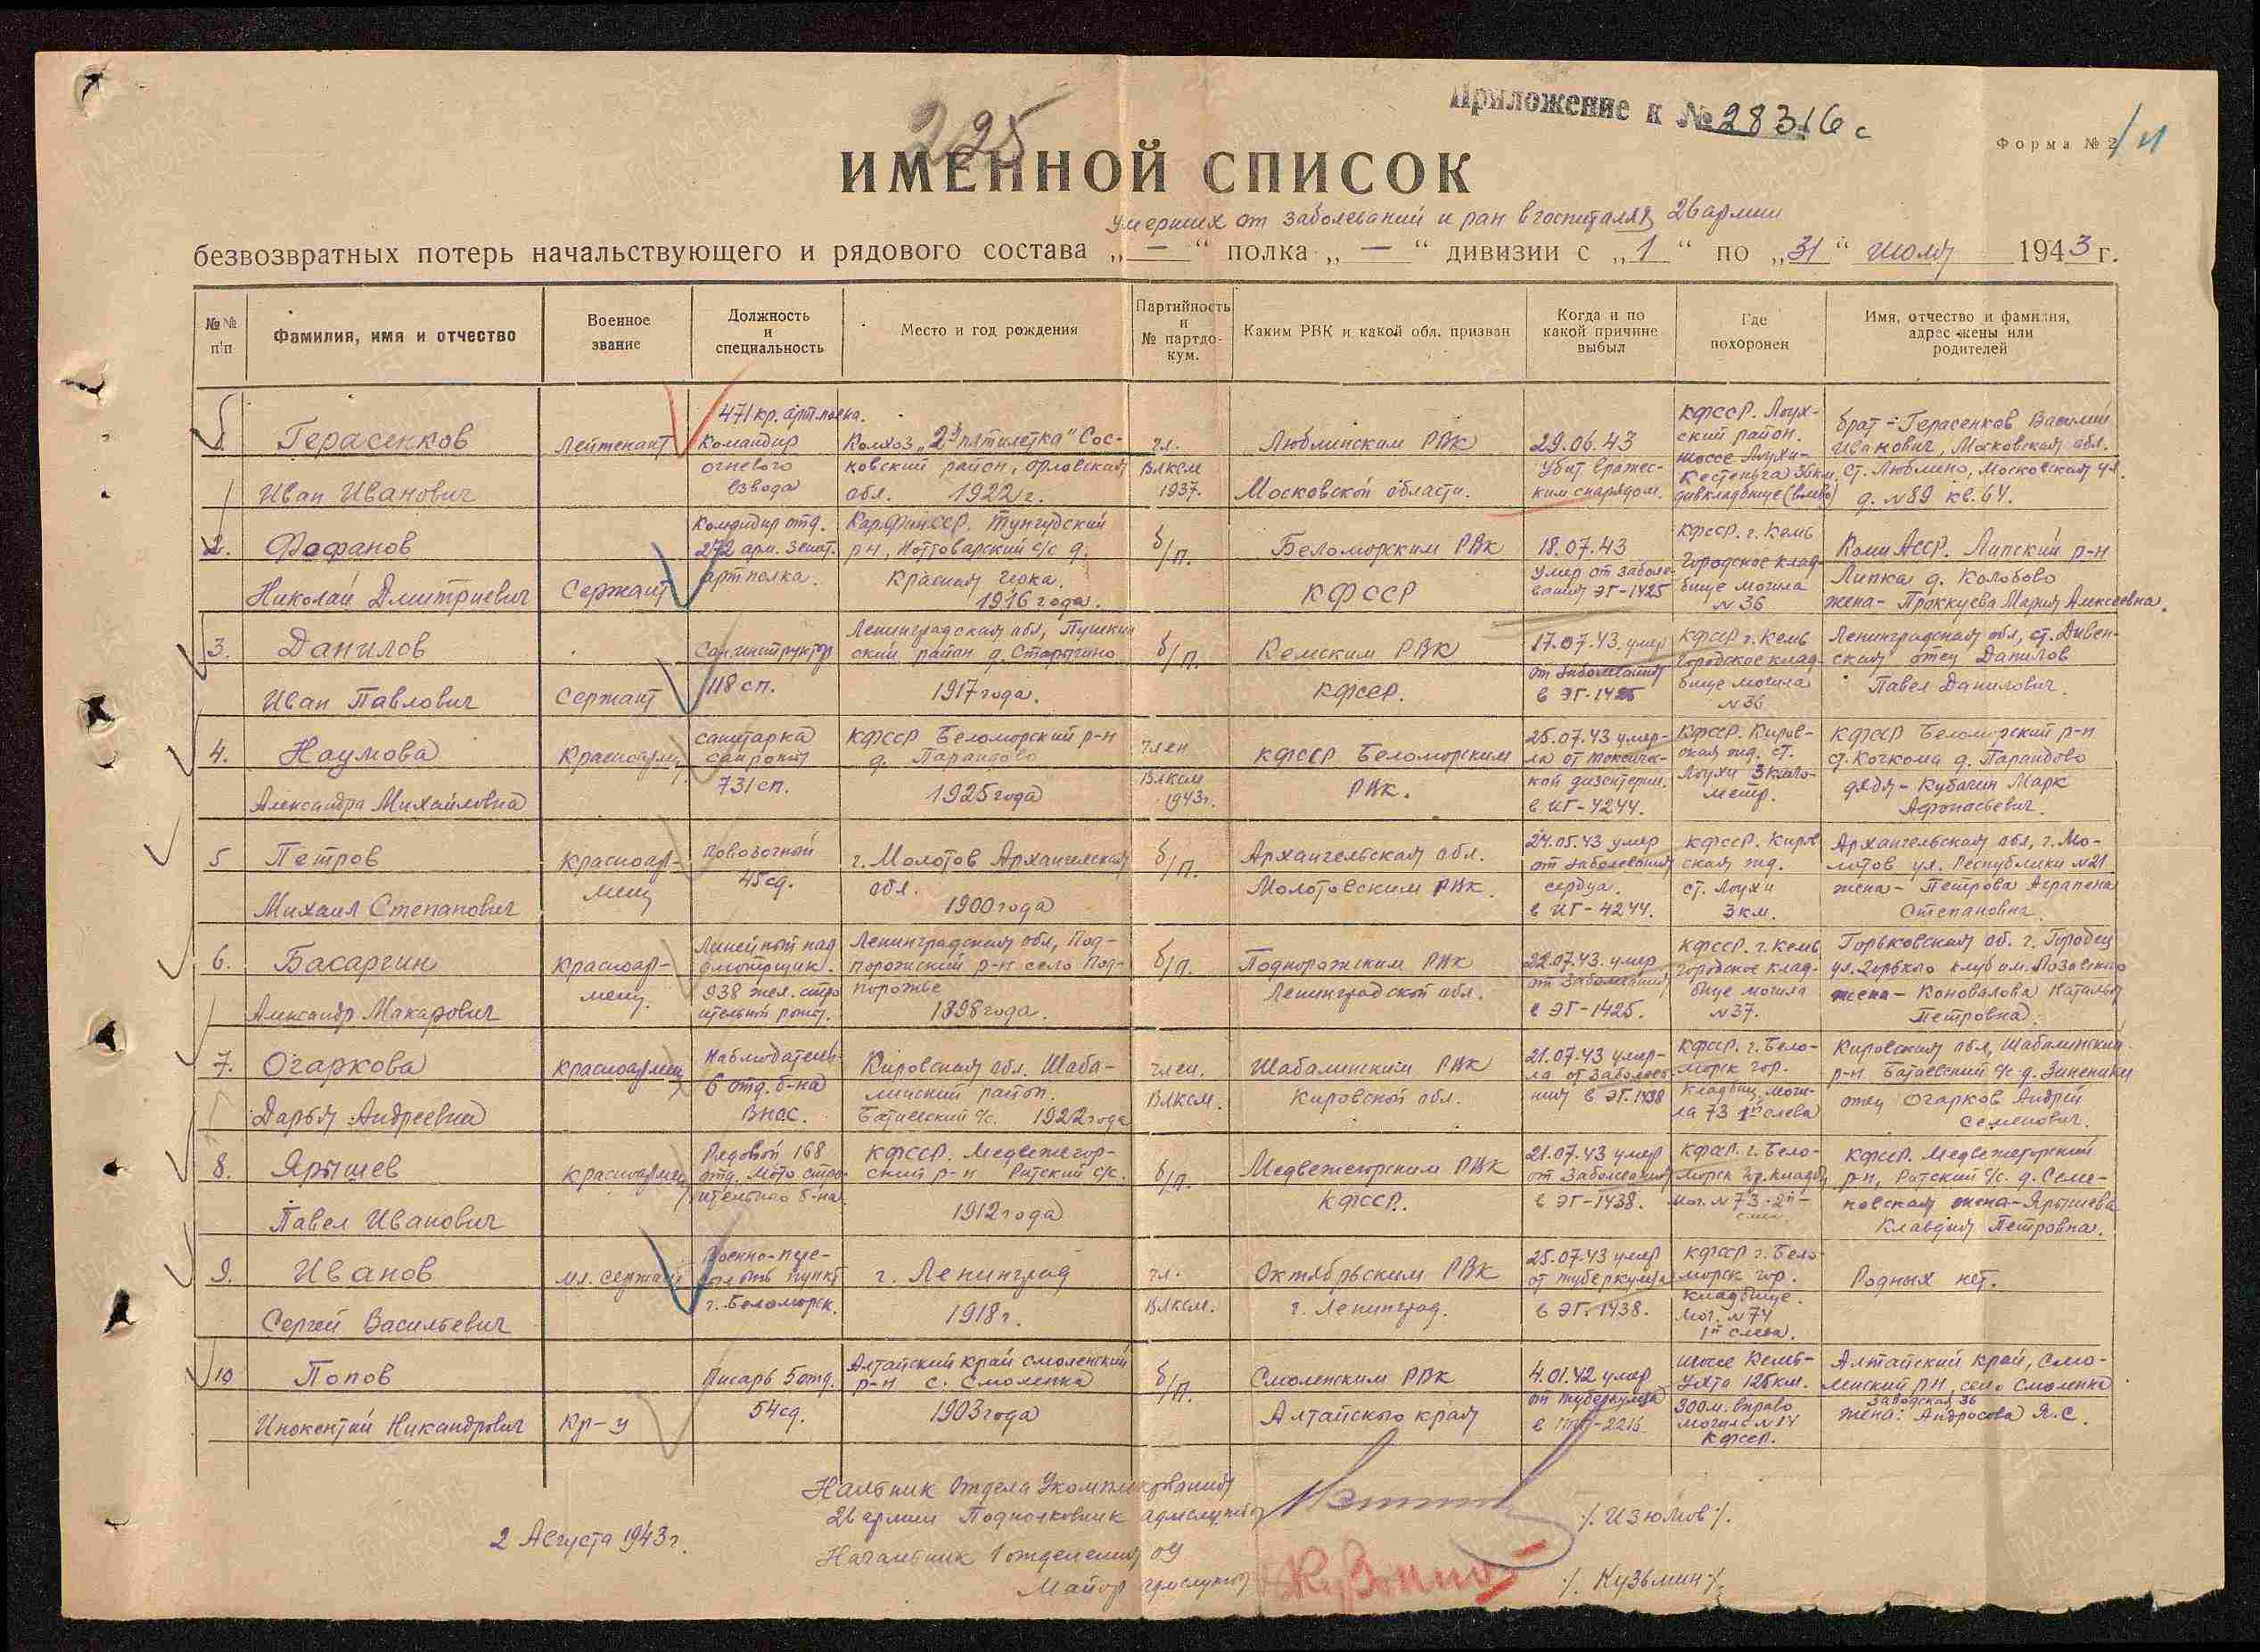 225
Приложение к № 28316 с
Форма № 2/н
ИМЕННОЙ СПИСОК
умерших от заболеваний и ран в госпиталях 26 армии
безвозвратных потерь начальствующего и рядового состава „ — “ полка „ — “ дивизии с „ 1 “ по „ 31 “ июля 1943 г.
№№ п/п
Фамилия, имя и отчество
Военное звание
Должность и специальность
Место и год рождения
Партийность и № партдокум.
Каким РВК и какой обл. призван
Когда и по какой причине выбыл
Где похоронен
Имя, отчество и фамилия, адрес жены или родителей
1.
Герасенков
Иван Иванович
Лейтенант
471 кр. арт. полка.
Командир
огневого
взвода
Колхоз „2я пятилетка“ Сос-
ковский район, Орловская
обл. 1922 г.
чл.
ВЛКСМ
1937.
Люблинским РВК
Московской области.
29.06.43
Убит вражес-
ким снарядом.
КФССР. Лоух-
ский район.
шоссе Лоухи-
Кестеньга 36 км.
дивкладбище (влево)
брат - Герасенков Василий
Иванович, Московская обл.
ст. Люблино, Московская ул.
д. №89 кв. 64.
2.
Фофанов
Николай Дмитриевич
Сержант
Командир отд.
272 арм. зенит.
артполка.
Кар.Фин.ССР. Тунгудский
р-н, с/с д.
Красная Горка.
1916 года.
б/п.
Беломорским РВК
КФССР
18.07.43
Умер от заболе-
вания ЭГ-1425
КФССР. г. Кемь
Городское клад-
бище могила
№36
Коми АССР. р-н
Липка д. Колобово
жена - Проккуева Мария Алексеевна.
3.
Данилов
Иван Павлович
Сержант
Сан. инструктор
118 сп.
Ленинградская обл, Пушкин
ский район д.
1917 года.
б/п.
Кемским РВК
КФССР.
17.07.43. умер
от заболевания
в ЭГ-1425
КФССР г. Кемь
Городское клад-
бище могила
№36
Ленинградская обл, ст. Дивен-
ская отец Данилов
Павел Данилович.
4.
Наумова
Александра Михайловна
Красноармец
санитарка
санроты
731 сп.
КФССР Беломорский р-н
д. Парандово
1925 года
член
ВЛКСМ
1943 г.
КФССР Беломорским
РВК.
25.07.43 умер-
ла от токсичес-
кой дизентерии.
в ИГ-4244.
КФССР. Киров-
ская жд. ст.
Лоухи 3 кило-
метр.
КФССР Беломорский р-н
ст. Кочкома д. Парандово
дядя - Кубачин Марк
Афонасьевич.
5
Петров
Михаил Степанович
Красноар-
меец
Повозочный
45 сд.
г. Молотов Архангельская
обл.
1900 года
б/п.
Архангельская обл.
Молотовским РВК.
24.05.43 умер
от заболевания
сердца.
в ИГ-4244.
КФССР. Киров
ская жд.
ст. Лоухи
3 км.
Архангельская обл, г. Мо-
лотов ул. Республики №21
жена - Петрова Аграпена
Степановна.
6.
Басаргин
Александр Макарович
Красноар-
меец.
Линейный над
смотрщик.
938 жел. строи
тельной роты.
Ленинградская обл, Под-
порожский р-н село Под-
порожье
1898 года.
б/п.
Подпорожским РВК
Ленинградской обл.
22.07.43. умер
от заболевания
в ЭГ-1425.
КФССР. г. Кемь
городское клад-
бище могила
№37.
Горьковская об. г. Городец
ул. Горького клуб им.
жена - Коновалова Наталья
Петровна.
7.
Огаркова
Дарья Андреевна
Красноармеец
Наблюдатель
6 отд. б-на
ВНОС.
Кировская обл. Шаба-
линский район.
Батаевский с/с. 1922 года
член.
ВЛКСМ.
Шабалинским РВК
Кировской обл.
21.07.43 умер-
ла от заболева
ния в ЭГ-1438
КФССР. г. Бело-
морск гор.
Кладбищ. моги-
ла 73 1й слева
Кировская обл, Шабалинский
р-н Батаевский с/с. д.
отец Огарков Андрей
Семенович.
8.
Ярышев
Павел Иванович
Красноармеец
Рядовой 168
отд. Мото строи
тельного б-на
КФССР. Медвежегор-
ский р-н с/с.
1912 года
б/п.
Медвежегорским РВК
КФССР.
21.07.43 умер
от заболевания
в ЭГ-1438.
КФССР. г. Бело-
морск гор. кладби
мог. №73-2й-
слев.
КФССР. Медвежегорский
р-н, с/с. д. Семе-
новская жена - Ярышева
Клавдия Петровна.
9.
Иванов
Сергей Васильевич
мл. сержант
Военно-пере-
сыльный пункт
г. Беломорск.
г. Ленинград
1918 г.
чл.
ВЛКСМ.
Октябрьским РВК
г. Ленинград.
25.07.43 умер
от туберкулеза
в ЭГ-1438.
КФССР г. Бело-
морск гор.
кладбище.
Мог. №74
1й слева.
Родных нет.
10
Попов
Инокентий Никандрович
Кр-ц
Писарь 5 отд.
54 сд.
Алтайский край Смоленский
р-н с. Смоленка
1903 года
б/п.
Смоленским РВК
Алтайского края
4.01.42 умер
от туберкулеза
в ППГ-2216
шоссе Кемь-
Ухта 125 км.
300 м. вправо
могила №14
КФССР.
Алтайский край, Смо-
ленский р-н, село Смоленка
Заводская 36
жена: Андросова Я.С.
Начальник Отдела Укомплектования
26 армии Подполковник адмслужбы /Изюмов/.
2 Августа 1943 г.
Начальник 1 отделения ОУ
Майор адмслужбы Кузьмин /Кузьмин/.